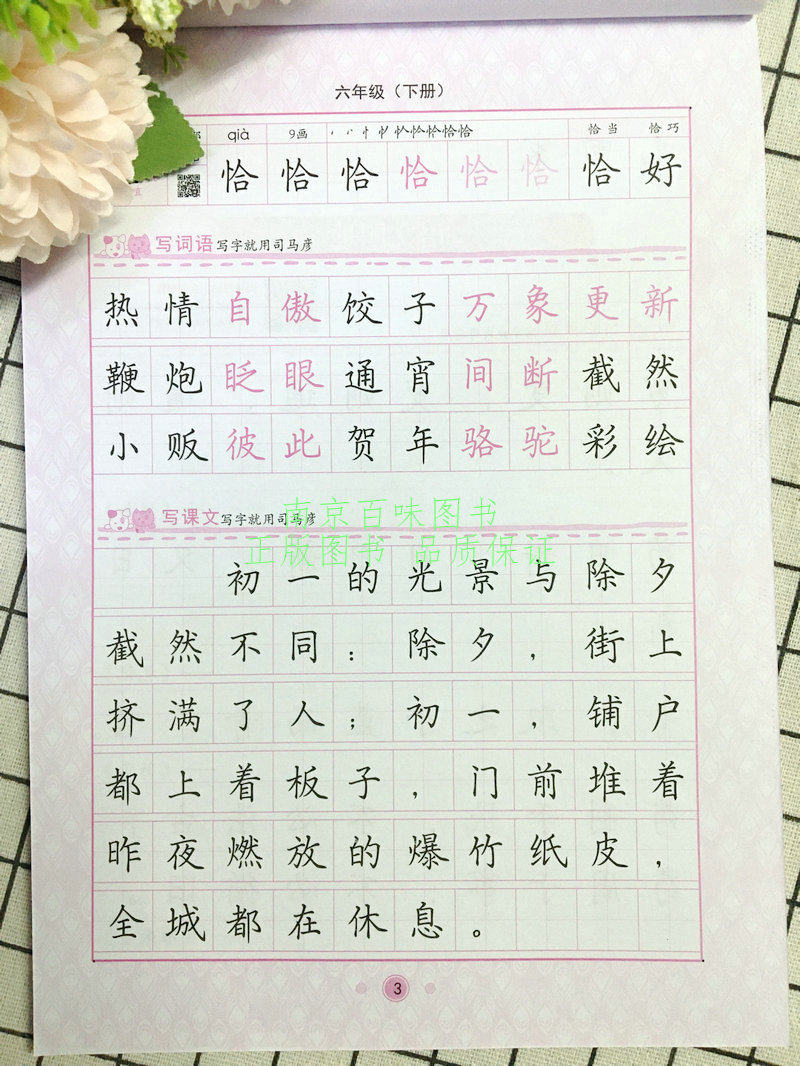 六年级（下册）
qià 9画 恰当 恰巧
恰恰恰恰恰恰恰好
写词语 写字就用司马彦
热情自傲饺子万象更新
鞭炮眨眼通宵间断截然
小贩彼此贺年骆驼彩绘
写课文 写字就用司马彦
南京百味图书
正版图书 品质保证
初一的光景与除夕
截然不同：除夕，街上
挤满了人；初一，铺户
都上着板子，门前堆着
昨夜燃放的爆竹纸皮，
全城都在休息。
3